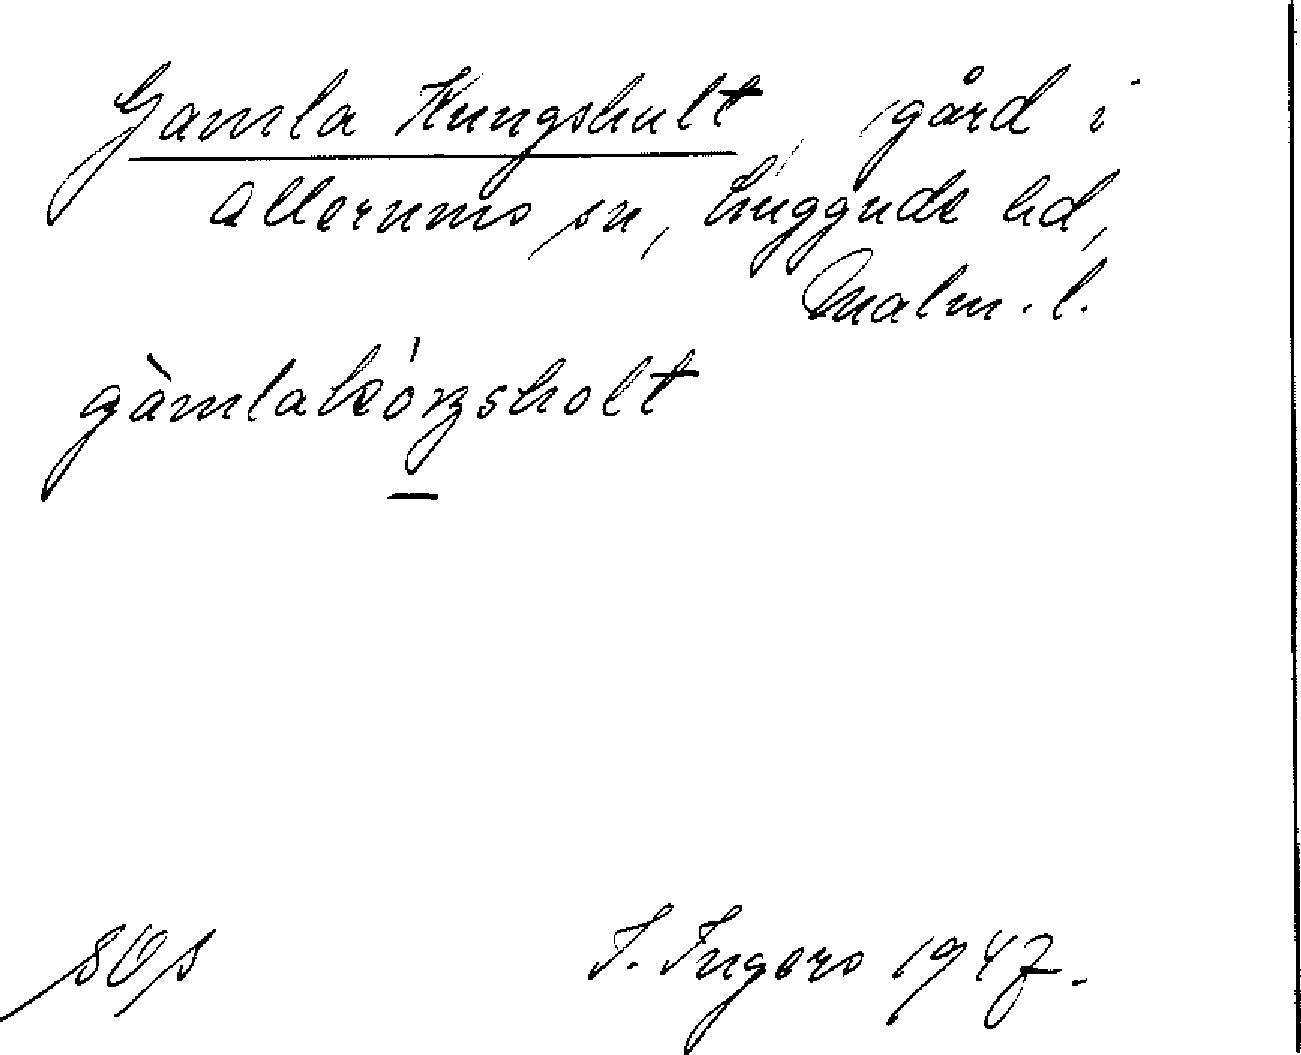 Gamla Kungshult, gård i
Allerums sn, Luggude hd,
Malm. l.
gàmlakóŋsholt
I. Ingers 1947.